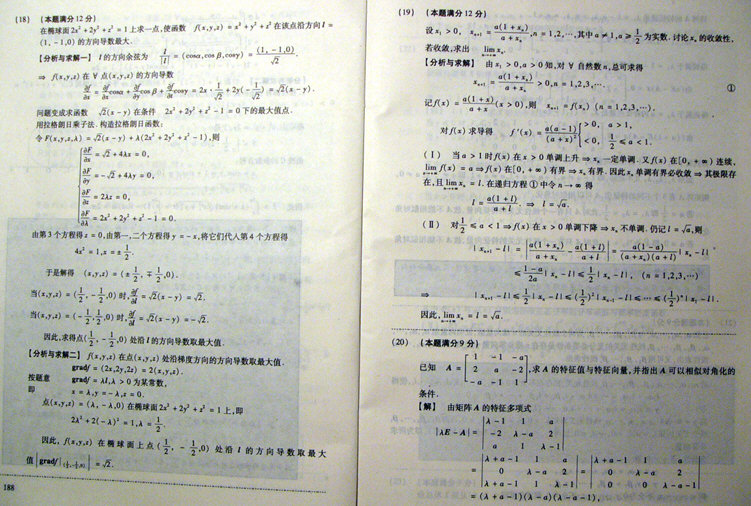 (18) (本题满分12分)
在椭球面2x² + 2y² + z² = 1上求一点,使函数 f(x,y,z) = x² + y² + z²在该点沿方向l =
(1, -1,0)的方向导数最大.
【分析与求解一】 l的方向余弦为 l/|l| = (cosα,cosβ,cosγ) = (1,-1,0)/√2.
⇒ f(x,y,z)在∀点(x,y,z)的方向导数
∂f/∂l = ∂f/∂x cosα + ∂f/∂y cosβ + ∂f/∂z cosγ = 2x·1/√2 + 2y(-1/√2) = √2(x - y).
问题变成求函数 √2(x - y)在条件 2x² + 2y² + z² - 1 = 0下的最大值点.
用拉格朗日乘子法.构造拉格朗日函数:
令F(x,y,z,λ) = √2(x - y) + λ(2x² + 2y² + z² - 1),则
∂F/∂x = √2 + 4λx = 0,
∂F/∂y = -√2 + 4λy = 0,
∂F/∂z = 2λz = 0,
∂F/∂λ = 2x² + 2y² + z² - 1 = 0.
由第3个方程得z = 0,由第一,二个方程得y = -x,将它们代入第4个方程得
4x² = 1,x = ±1/2.
于是解得 (x,y,z) = (±1/2, ∓1/2,0).
当(x,y,z) = (1/2, -1/2,0)时,∂f/∂l = √2(x - y) = √2.
当(x,y,z) = (-1/2, 1/2,0)时,∂f/∂l = √2(x - y) = -√2.
因此,求得点(1/2, -1/2,0)处沿l的方向导数取最大值.
【分析与求解二】 f(x,y,z)在点(x,y,z)处沿梯度方向的方向导数取最大值.
gradf = (2x,2y,2z) = 2(x,y,z).
按题意 gradf = λl,λ > 0为某常数,
即 x = λ,y = -λ,z = 0.
点(x,y,z) = (λ, -λ,0)在椭球面2x² + 2y² + z² = 1上,即
2λ² + 2(-λ)² = 1,λ = 1/2.
因此, f(x,y,z)在椭球面上点(1/2, -1/2,0)处沿l的方向导数取最大
值|gradf|(1/2,-1/2,0)| = √2.
188
(19) (本题满分12分)
设x₁ > 0, xₙ₊₁ = a(1 + xₙ)/(a + xₙ),n = 1,2,…,其中a ≠ 1,a ≥ 1/2为实数.讨论xₙ的收敛性,
若收敛,求出 lim xₙ.
【分析与求解】 由x₁ > 0,a > 0知,对∀自然数n,总可求得
xₙ₊₁ = a(1 + xₙ)/(a + xₙ) > 0,n = 1,2,3,…. ①
记f(x) = a(1 + x)/(a + x)(x > 0),则 xₙ₊₁ = f(xₙ) (n = 1,2,3,…).
对f(x)求导得 f′(x) = a(a - 1)/(a + x)² { > 0, a > 1,
< 0, 1/2 ≤ a < 1.
(Ⅰ) 当a > 1时f(x)在x > 0单调上升⇒ xₙ一定单调.又f(x)在[0, +∞)连续,
lim f(x) = a ⇒ f(x)在[0, +∞)有界⇒ xₙ有界.因此xₙ单调有界必收敛⇒其极限存
在,且lim xₙ = l.在递归方程①中令n→∞得
l = a(1 + l)/(a + l) ⇒ l = √a.
(Ⅱ) 对1/2 ≤ a < 1 ⇒ f(x)在x > 0单调下降⇒ xₙ不单调.仍记l = √a,则
| xₙ₊₁ - l | = | a(1 + xₙ)/(a + xₙ) - a(1 + l)/(a + l) | = a(1 - a)/((a + xₙ)(a + l)) | xₙ - l |
≤ (1 - a)/2a | xₙ - l | ≤ 1/2 | xₙ - l |, (n = 1,2,3,…)
⇒ | xₙ₊₁ - l | ≤ 1/2 | xₙ - l | ≤ (1/2)² | xₙ₋₁ - l | ≤ … ≤ (1/2)ⁿ | x₁ - l |.
因此, lim xₙ = l = √a.
n→∞
(20) (本题满分9分)
已知 A = [1 -1 -a
2 a -2
-a -1 1], 求A的特征值与特征向量,并指出A可以相似对角化的
条件.
【解】 由矩阵A的特征多项式
|λE - A| = | λ - 1 1 a
-2 λ - a 2
a 1 λ - 1 |
= | λ + a - 1 1 a
0 λ - a 2
λ + a - 1 1 λ - 1 | = | λ + a - 1 1 a
0 λ - a 2
0 0 λ - a - 1 |
= (λ + a - 1)(λ - a)(λ - a - 1),